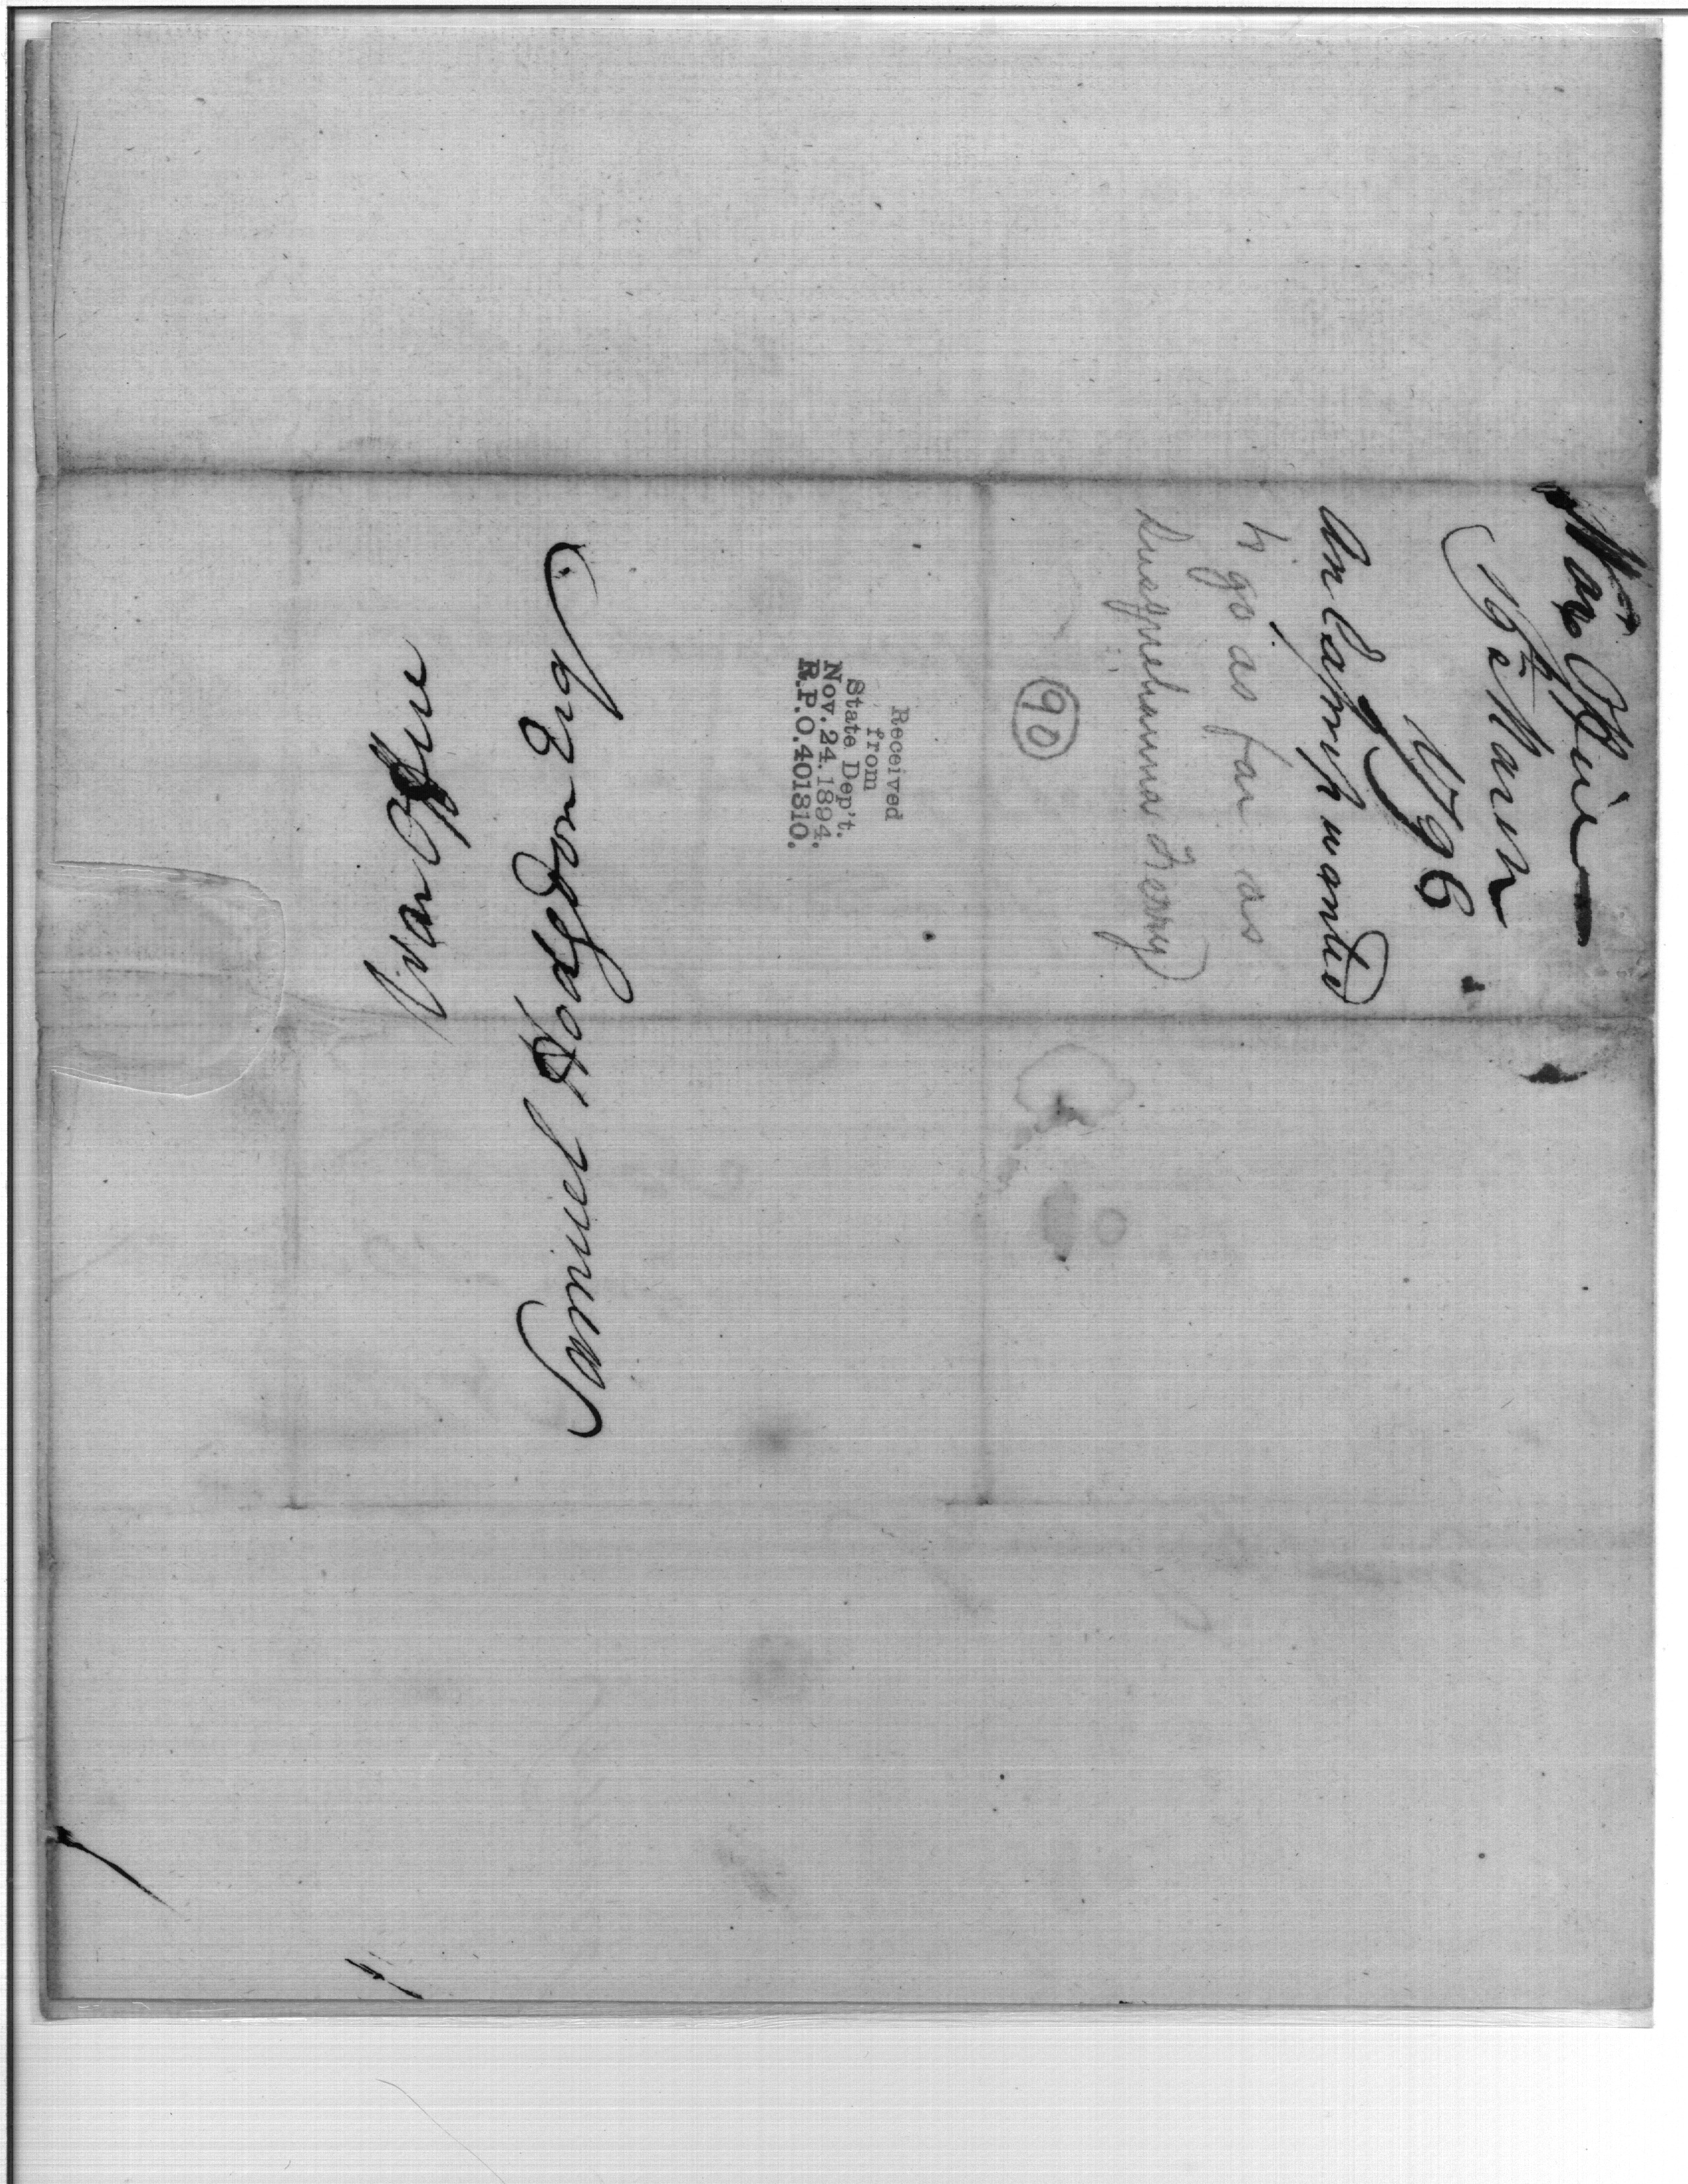 War Office
16th March
1796
An Express wanted
to go as far as
Susquehanna Ferry
90
Received
from
State Dep't.
Nov. 24. 1894.
R.P.O. 401810.
Samuel Hodgdon Esq
War Office